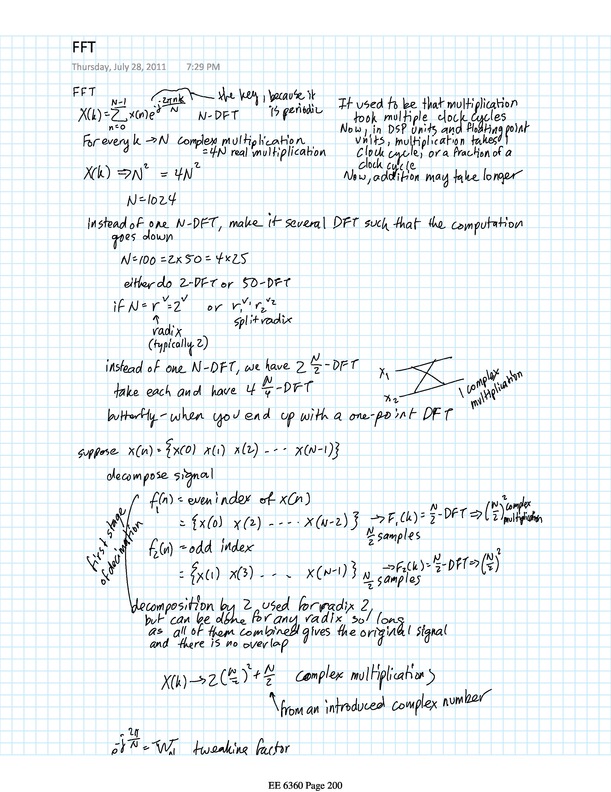 FFT
Thursday, July 28, 2011 7:29 PM
FFT
X(k) = Σ_{n=0}^{N-1} x(n) e^{-j2πnk/N} N-DFT
the key, because it is periodic
For every k → N complex multiplication
= 4N real multiplication
X(k) ⇒ N² = 4N²
N=1024
It used to be that multiplication
took multiple clock cycles
Now, in DSP units and floating point
units, multiplication takes 1
clock cycle, or a fraction of a
clock cycle
Now, addition may take longer
Instead of one N-DFT, make it several DFT such that the computation
goes down
N=100 = 2x50 = 4x25
either do 2-DFT or 50-DFT
if N = r^v = 2^v or r₁^v₁ r₂^v₂
↑ radix (typically 2)
split radix
instead of one N-DFT, we have 2 N/2-DFT
take each and have 4 N/4-DFT
butterfly - when you end up with a one-point DFT
x₁
x₂
1 complex
multiplication
suppose x(n) = {x(0) x(1) x(2) ---- x(N-1)}
decompose signal
first stage
of decimation
f₁(n) = even index of x(n)
= {x(0) x(2) ---- x(N-2)} N/2 samples → F₁(k) = N/2-DFT ⇒ (N/2)² complex multiplication
f₂(n) = odd index
= {x(1) x(3) . . . . x(N-1)} N/2 samples → F₂(k) = N/2-DFT ⇒ (N/2)²
decomposition by 2, used for radix 2,
but can be done for any radix so long
as all of them combined gives the original signal
and there is no overlap
X(k) → 2(N/2)² + N/2 complex multiplications
↑ from an introduced complex number
e^{-j2π/N} = W_N tweaking factor
EE 6360 Page 200